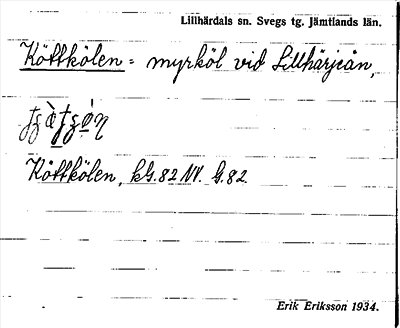 Lillhärdals sn. Svegs tg. Jämtlands län.
Köttkölen = myrköl vid Lillhärjeån,
Köttkölen, kG. 82 NV. G. 82
Erik Eriksson 1934.